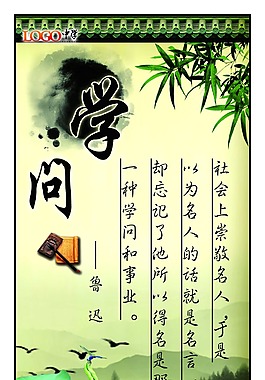 LOGO
学问
社会上崇敬名人,于是
以为名人的话就是名言
却忘记了他所以得名是那
一种学问和事业。
——鲁迅